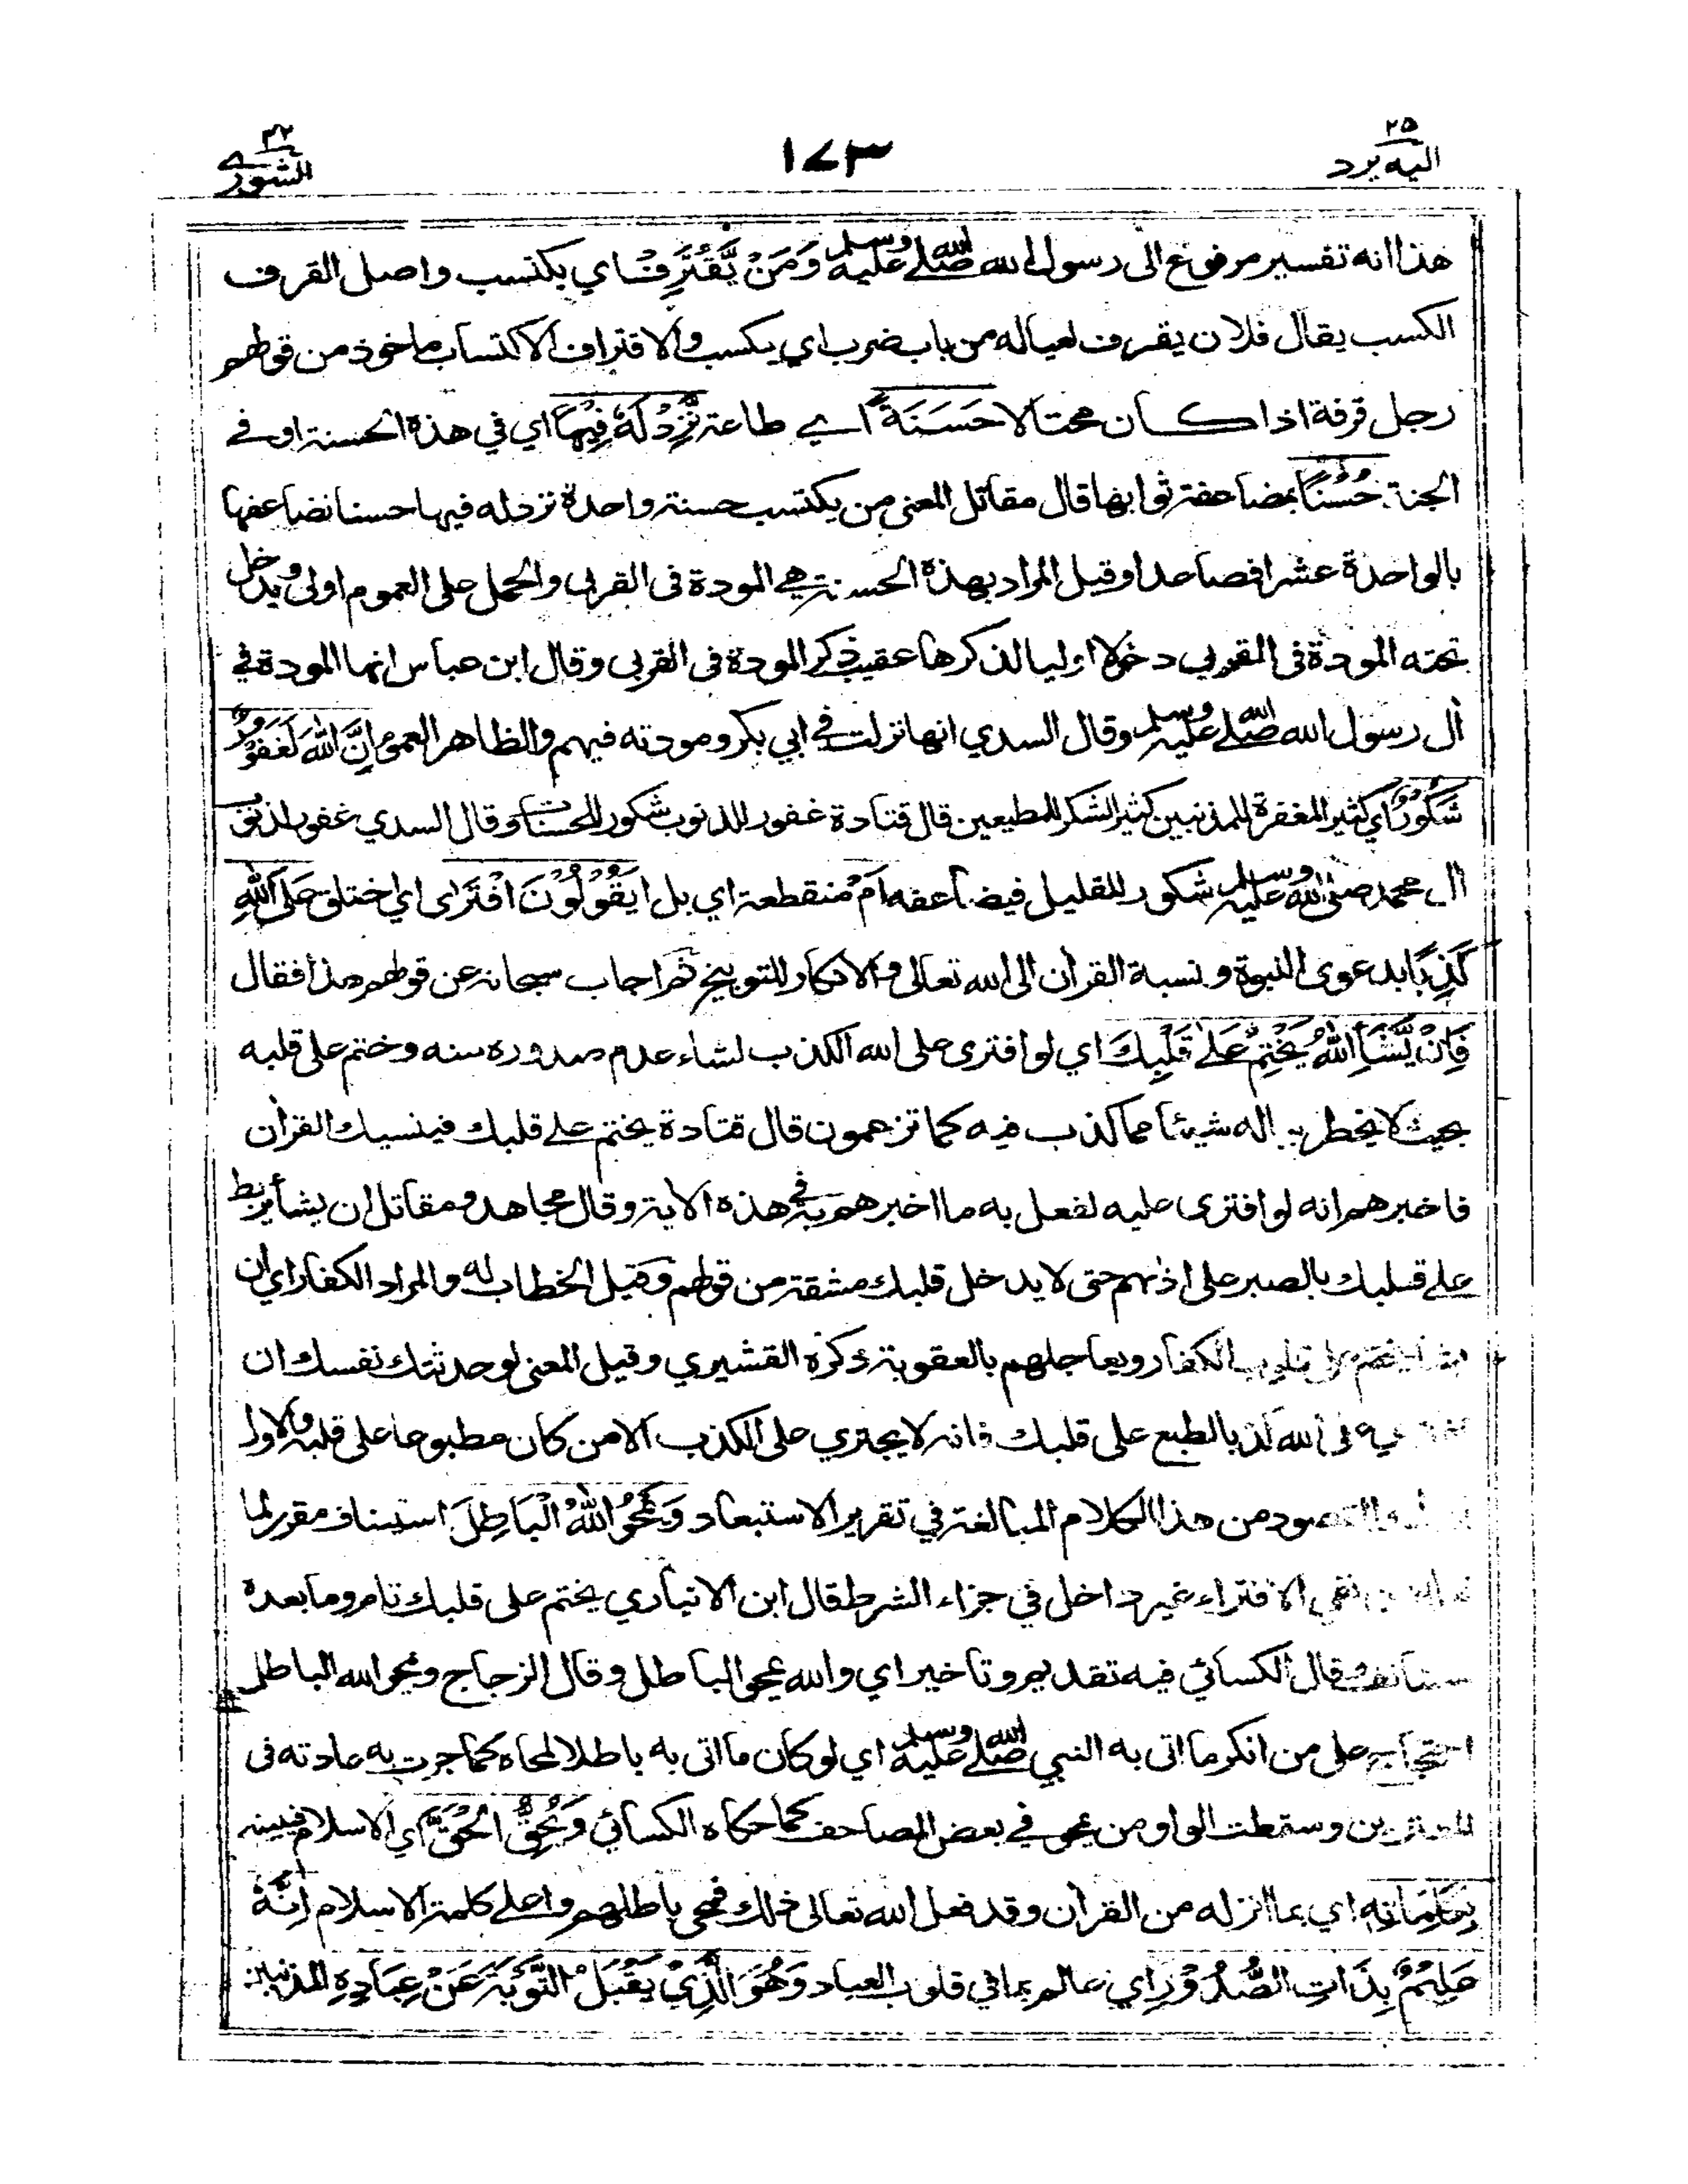 ٢٥
اليه يرد
١٧٣
٤٢
الشورى
هذا انه تفسير مرفوع الى رسول الله صلى الله عليه وسلم وَمَنْ يَّقْتَرِفْ اي يكتسب واصل القرف
الكسب يقال فلان يقرف لعياله من باب ضرب اي يكسب والاقتراف الاكتساب ماخوذ من قولهم
رجل قرفة اذا كان محتالا حَسَنَةً اي طاعة نَّزِدْ لَهٗ فِيْهَا اي في هذه الحسنة او في
الجنة حُسْنًا بمضاعفة ثوابها قال مقاتل المعنى من يكتسب حسنة واحدة نزد له فيها حسنا نضاعفها
بالواحدة عشرا فصاعدا وقيل المراد بهذه الحسنة هي المودة فى القربى والحمل على العموم اولى ويدخل
تحته المودة فى القربى دخولا اوليا لذكرها عقيب ذكر المودة فى القربى وقال ابن عباس انها المودة في
أل رسول الله صلى الله عليه وسلم وقال السدي انها نزلت في ابي بكر ومودته فيهم والظاهر العموم اِنَّ اللهَ لَغَفُوْرٌ
شَكُوْرٌ اي كثير المغفرة للمذنبين كثير الشكر للمطيعين قال قتادة غفور للذنوب شكور للحسنات وقال السدي غفور لذنوب
ال محمد صلى الله عليه وسلم شكور للقليل فيضاعفه اَمْ منقطعة اي بل ا يَقُوْلُوْنَ افْتَرٰى اي اختلق عَلَى اللهِ
كَذِبًا بدعوى النبوة ونسبة القرأن الى الله تعالى والانكار للتوبيخ ثم اجاب سبحانه عن قولهم هذا فقال
فَاِنْ يَّشَاِ اللهُ يَخْتِمْ عَلٰى قَلْبِكَ اي لو افترى على الله الكذب لشاء عدم صدوره منه وختم على قلبه
بحيث لا يخطر بباله شيئا مما كذب فيه كما تزعمون قال قتادة يختم على قلبك فينسيك القرأن
فاخبرهم انه لو افترى عليه لفعل به ما اخبرهم به في هذه الأية وقال مجاهد ومقاتل ان يشأ يربط
على قلبك بالصبر على اذاهم حتى لا يدخل قلبك مشقة من قولهم وقيل الخطاب له والمراد الكفار اي ان
يشأ يختم على قلوب الكفار ويعاجلهم بالعقوبة ذكره القشيري وقيل المعنى لو حدثتك نفسك ان
على الله كذبا لطبع على قلبك فانه لا يجتري على الكذب الا من كان مطبوعا على قلبه والاول
والمقصود من هذا الكلام المبالغة في تقرير الاستبعاد وَيَمْحُ اللهُ الْبَاطِلَ استيناف مقرر لما
نفي الافتراء غير داخل في جزاء الشرط قال ابن الانباري يختم على قلبك تام وما بعده
مستأنف وقال الكسائي فيه تقديم وتاخير اي والله يمحو الباطل وقال الزجاج ويمحو الله الباطل
احتجاج على من انكر ما اتى به النبي صلى الله عليه وسلم اي لو كان ما اتى به باطلا لمحاه كما جرت به عادته فى
المفترين وسقطت الواو من يمحو في بعض المصاحف كما حكاه الكسائي وَيُحِقُّ الْحَقَّ اي الاسلام فيبينه
بِكَلِمَاتِهٖ اي بما انزله من القرأن وقد فعل الله تعالى ذلك فمحى باطلهم واعلى كلمة الاسلام اِنَّهٗ
عَلِيْمٌ بِذَاتِ الصُّدُوْرِ اي عالم بما في قلوب العباد وَهُوَ الَّذِيْ يَقْبَلُ التَّوْبَةَ عَنْ عِبَادِهٖ المذنبين